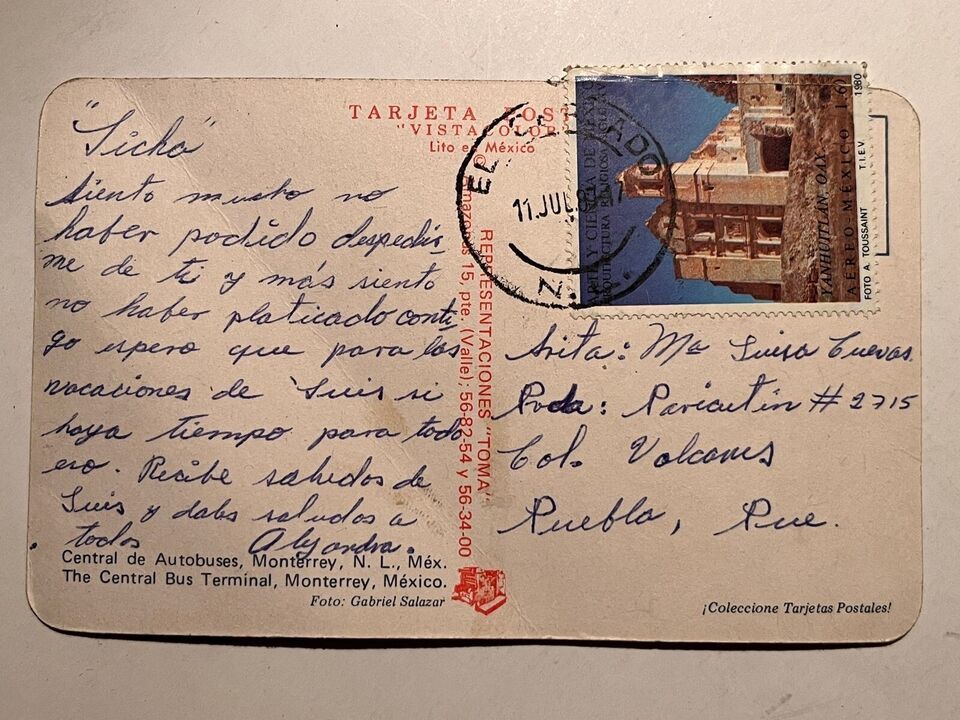 TARJETA POST
"VISTACOLOR
Lito en México
©
"Licha"
siento mucho no
haber podido despedir
me de ti y más siento
no haber platicado conti
go espero que para las
vacaciones de Luis si
haya tiempo para todo
eso. Recibe saludos de
Luis y dales saludos a
todos Alejandra.
Central de Autobuses, Monterrey, N. L., Méx.
The Central Bus Terminal, Monterrey, México.
Foto: Gabriel Salazar
REPRESENTACIONES "TOMA"
Amazonas 15, pte. (Valle); 56-82-54 y 56-34-00
EL CERCADO
11 JUL 8
N.
ARTE Y CIENCIA DE MEXICO
ARQUITECTURA RELIGIOSA
YANHUITLAN OAX
AEREO•MÉXICO 1.6
FOTO A. TOUSSAINT T.I.E.V. 1980
Srita: Ma Luisa Cuevas.
Pvda: Paricutín # 2715
Col. Volcanes
Puebla, Pue.
¡Coleccione Tarjetas Postales!